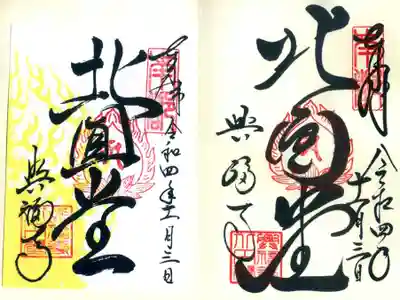 奉拝
令和四年
十一月三日
北圓堂
興福寺
奉拝 令和四年十一月三日
北圓堂
興福寺